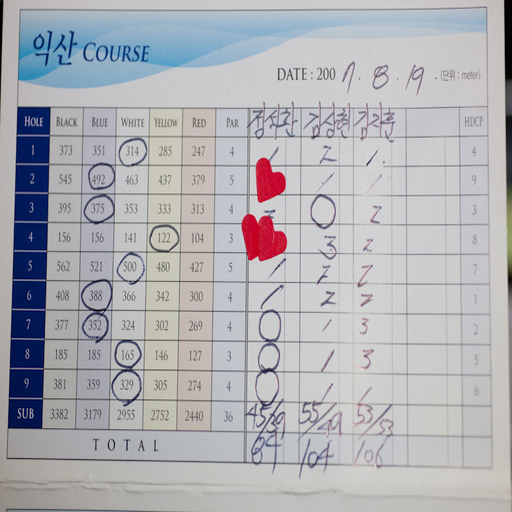 익산 COURSE
DATE : 2007 . 8 . 19 . (단위 : meter)
HOLE BLACK BLUE WHITE YELLOW RED PAR HDCP
1 373 351 314 285 247 4 1 2 1 4
2 545 492 463 437 379 5 1 1 9
3 395 375 353 333 313 4 0 2 3
4 156 156 141 122 104 3 3 2 8
5 562 521 500 480 427 5 1 2 2 7
6 408 388 366 342 300 4 1 2 2 1
7 377 352 324 302 269 4 0 1 3 2
8 185 185 165 146 127 3 0 1 3 5
9 381 359 329 305 274 4 0 1 1 6
SUB 3382 3179 2955 2752 2440 36 45/39 55/49 53/53
TOTAL 84 104 106